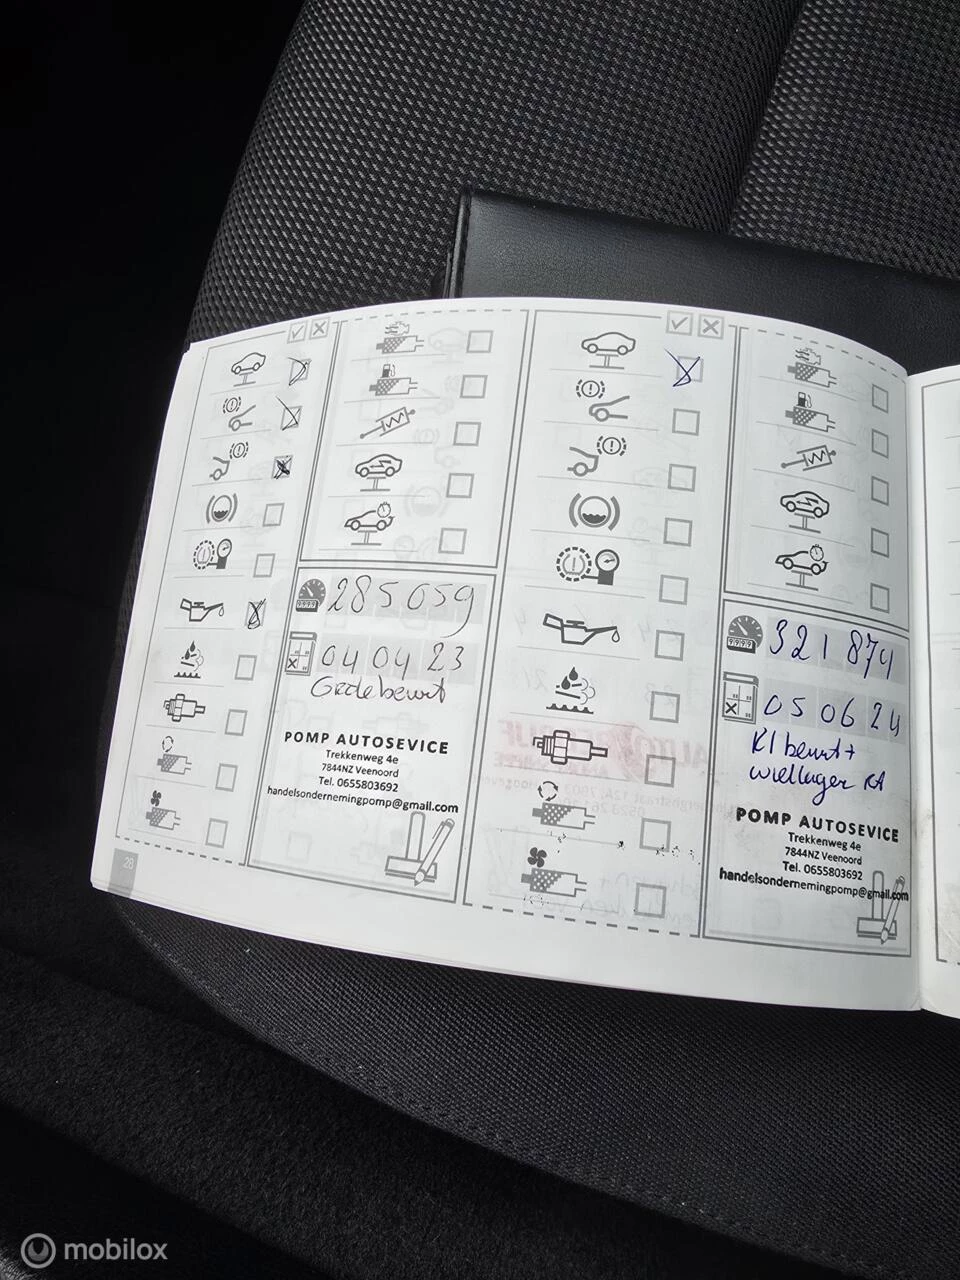 285059
04 04 23
Grote beurt
POMP AUTOSEVICE
Trekkenweg 4e
7844NZ Veenoord
Tel. 0655803692
handelsondernemingpomp@gmail.com
28
321874
05 06 24
Kl beurt +
wiellager RA
POMP AUTOSEVICE
Trekkenweg 4e
7844NZ Veenoord
Tel. 0655803692
handelsondernemingpomp@gmail.com
mobilox